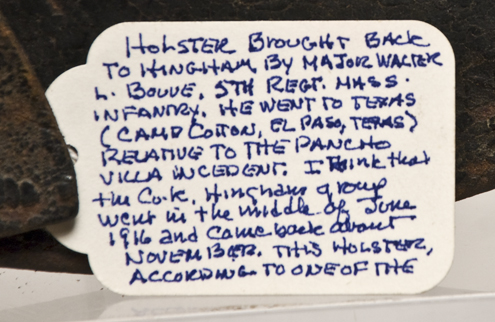 HOLSTER BROUGHT BACK
TO HINGHAM BY MAJOR WALTER
L. BOUVE, 5TH REGT. MASS.
INFANTRY. HE WENT TO TEXAS
(CAMP COTTON, EL PASO, TEXAS)
RELATIVE TO THE PANCHO
VILLA INCEDENT. I think that
the Co. K, Hingham group
went in the middle of June
1916 and came back about
NOVEMBER. THIS HOLSTER,
ACCORDING TO ONE OF THE